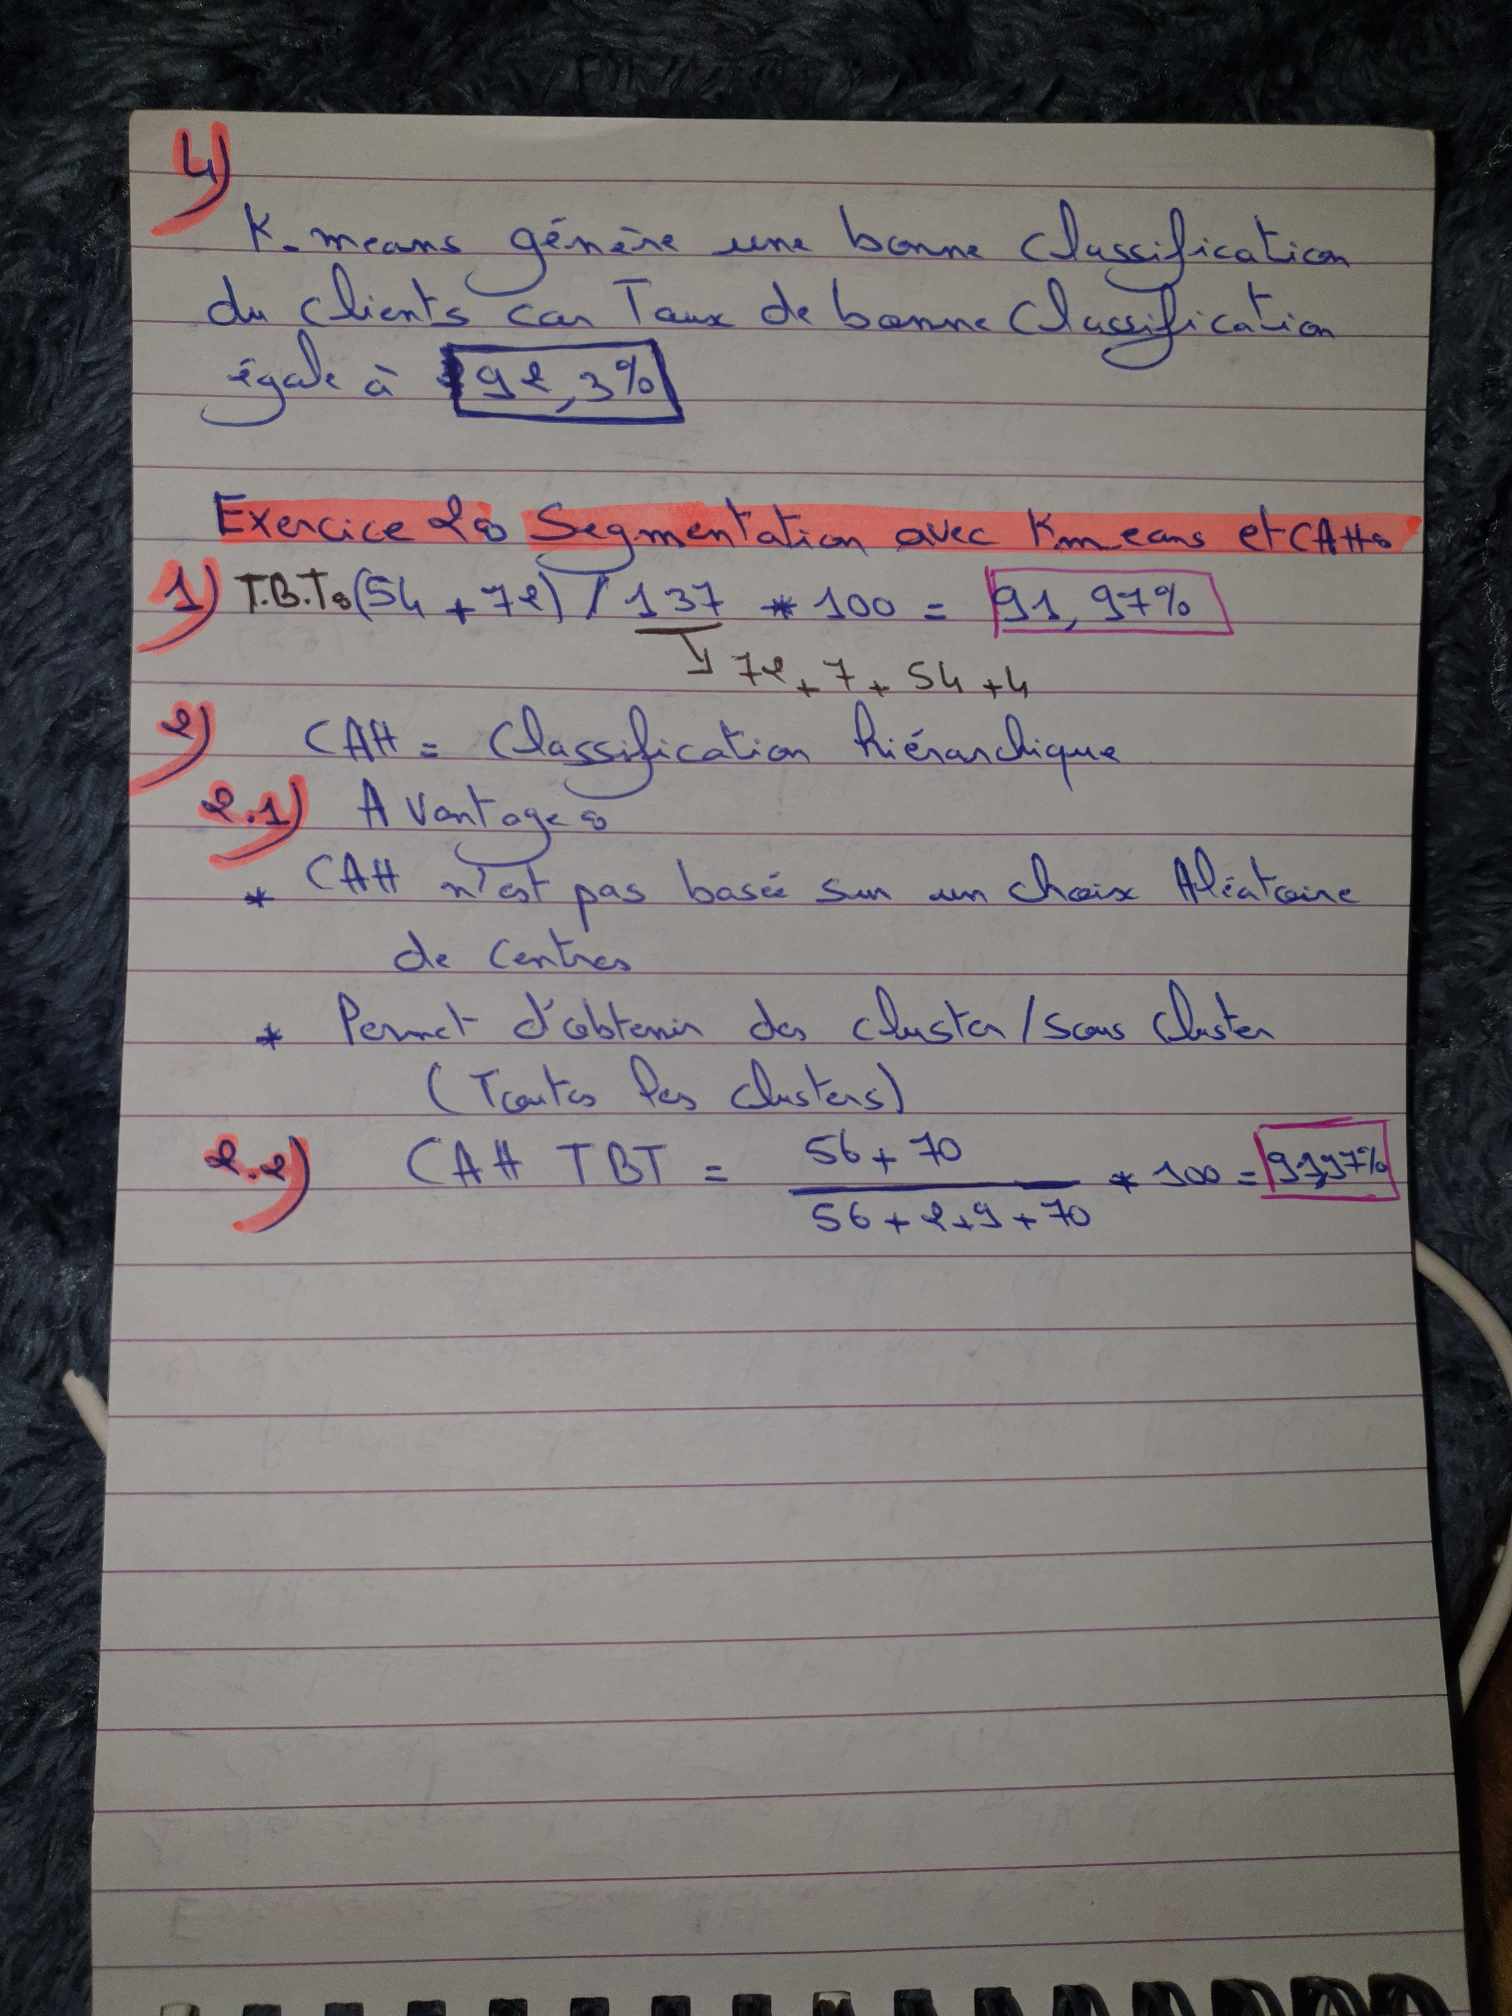 4)
K-means génère une bonne classification
du clients car Taux de bonne classification
égale à 92,3%
Exercice 2: Segmentation avec Kmeans et CAH:
1) T.B.T: (54 + 72) / 137 * 100 = 91,97%
72 + 7 + 54 + 4
2) CAH = Classification hiérarchique
2.1) Avantage:
* CAH n'est pas basée sur un choix Aléatoire
de centres
* Permet d'obtenir des cluster/sous cluster
(Toutes les clusters)
2.2) CAH TBT = 56 + 70 / 56 + 2 + 9 + 70 * 100 = 91,97%